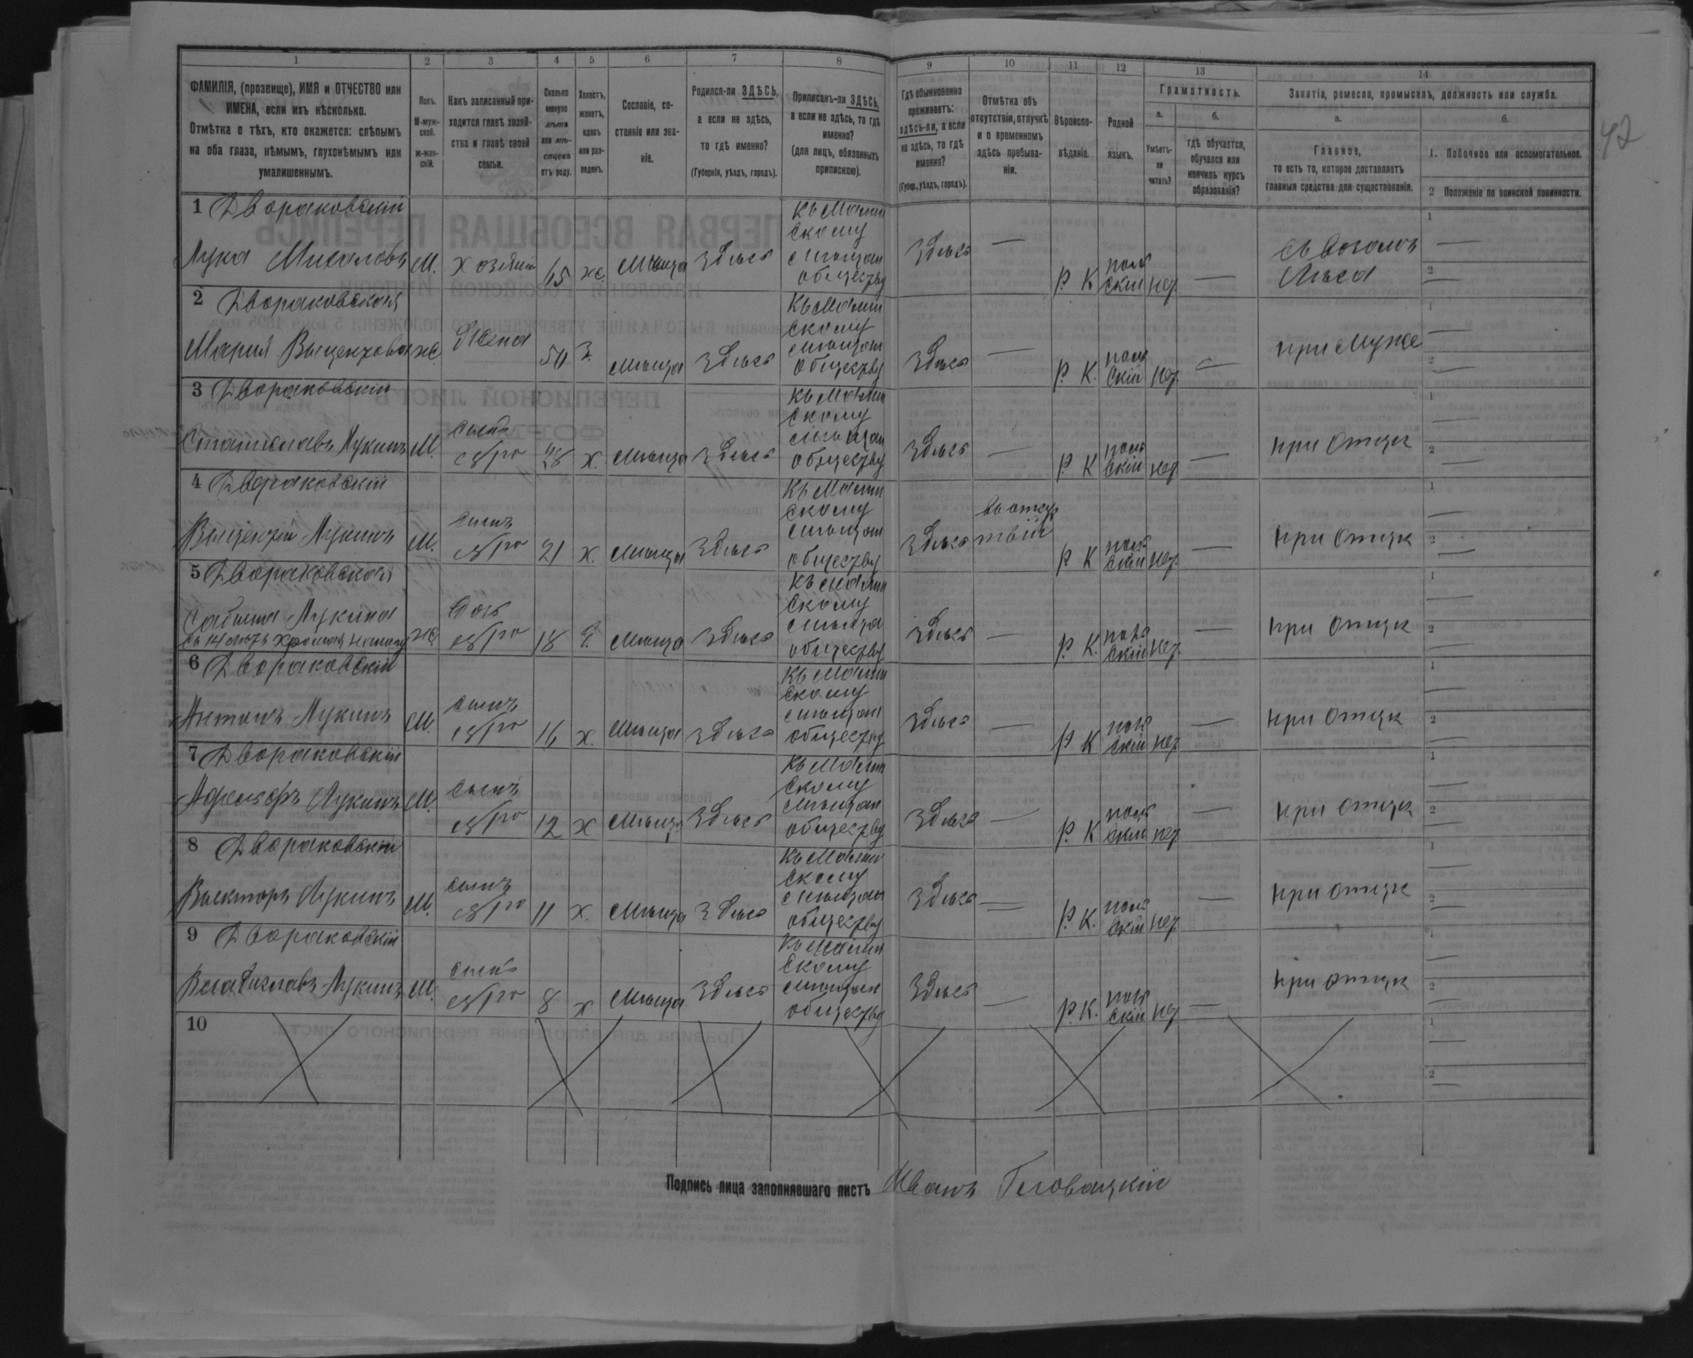 1 2 3 4 5 6 7 8 9 10 11 12 13 14
ФАМИЛІЯ, (прозвище), ИМЯ и ОТЧЕСТВО или ИМЕНА, если ихъ нѣсколько.
Отмѣтка о тѣхъ, кто окажется: слѣпымъ на оба глаза, нѣмымъ, глухонѣмымъ или умалишеннымъ.
Полъ.
М-муж-
ской.
ж-жен-
скій.
Какъ записанный при-
ходится главѣ хозяй-
ства и главѣ своей
семьи.
Сколько
минуло
лѣтъ
или мѣ-
сяцевъ
отъ роду.
Холостъ,
женатъ,
вдовъ
или раз-
веденъ.
Сословіе, со-
стояніе или зва-
ніе.
Родился-ли ЗДѢСЬ,
а если не здѣсь,
то гдѣ именно?
(Губернія, уѣздъ, городъ).
Приписанъ-ли ЗДѢСЬ,
а если не здѣсь, то гдѣ
именно?
(для лицъ, обязанныхъ
припискою).
Гдѣ обыкновенно
проживаетъ:
здѣсь-ли, а если
не здѣсь, то гдѣ
именно?
(Губер, уѣздъ, городъ).
Отмѣтка объ
отсутствіи, отлучкѣ
и о временномъ
здѣсь пребыва-
ніи.
Вѣроиспо-
вѣданіе.
Родной
языкъ.
Грамотность.
а. б.
Умѣетъ-
ли
читать?
гдѣ обучается,
обучался или
кончилъ курсъ
образованія?
Занятія, ремесло, промыселъ, должность или служба.
а. б.
Главное,
то есть то, которое доставляетъ
главныя средства для существованія.
1. Побочное или вспомогательное.
2 Положеніе по воинской повинности.
42
1 Двораковскій
Лука Михаловъ М. хозяинъ 65 же. мѣща здѣсь Къ Малин скому мѣщан обществу здѣсь — Р К поль скій нет —
2 Двораковская
Мария жена 50 З. мѣща здѣсь Къ Малин скому мѣщан обществу здѣсь — Р. К. поль скій нет. — при муже
3 Двораковскій
Станиславъ Лукинъ М. сынъ его х. мѣща здѣсь Къ Малин скому мѣщан обществу здѣсь — Р К поль скій нет — при отце
4 Двораковскій
Лукинъ М. сынъ его 21 х. мѣща здѣсь Къ Малин скому мѣщан обществу здѣсь Р К поль скій нет. — при отце
5 Двораковская
Лукина доч его 18 мѣща здѣсь Къ Малин скому мѣщан обществу здѣсь — Р. К. поль скій нет. — при отце
6 Двораковскій
Антонъ Лукинъ М. сынъ его 16 х. мѣща здѣсь Къ Малин скому мѣщан обществу здѣсь — Р К поль скій нет — при отце
7 Двораковскій
Лукинъ М. сынъ его 12 х мѣща здѣсь Къ Малин скому мѣщан обществу здѣсь — Р. К поль скій нет — при отце
8 Двораковскій
Викторъ Лукинъ М. сынъ его 11 х. мѣща здѣсь Къ Малин скому мѣщан обществу здѣсь — Р. К. поль скій нет — при отце
9 Двораковскій
Владиславъ Лукинъ М. сынъ его 8 х мѣща здѣсь Къ Малин скому мѣщан обществу здѣсь — Р. К. поль скій нет — при отце
10
Подпись лица заполнявшаго листъ Иванъ